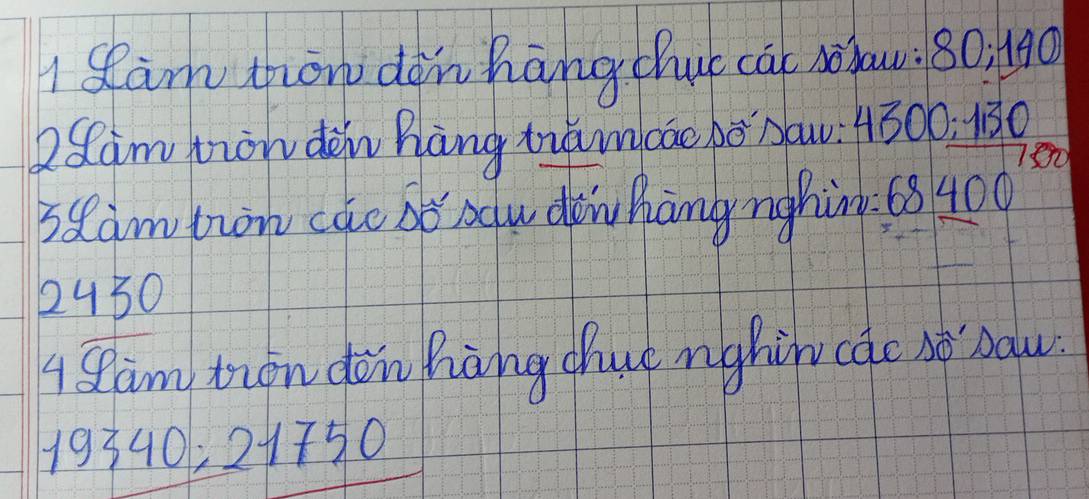 1 Làm tròn đến hàng chục các số sau: 80; 140
2 Làm tròn đến hàng trăm các số sau: 4300; 130
100
3 Làm tròn các số sau đến hàng nghìn: 68 400
2430
4 Làm tròn đến hàng chục nghìn các số sau:
19340; 21750